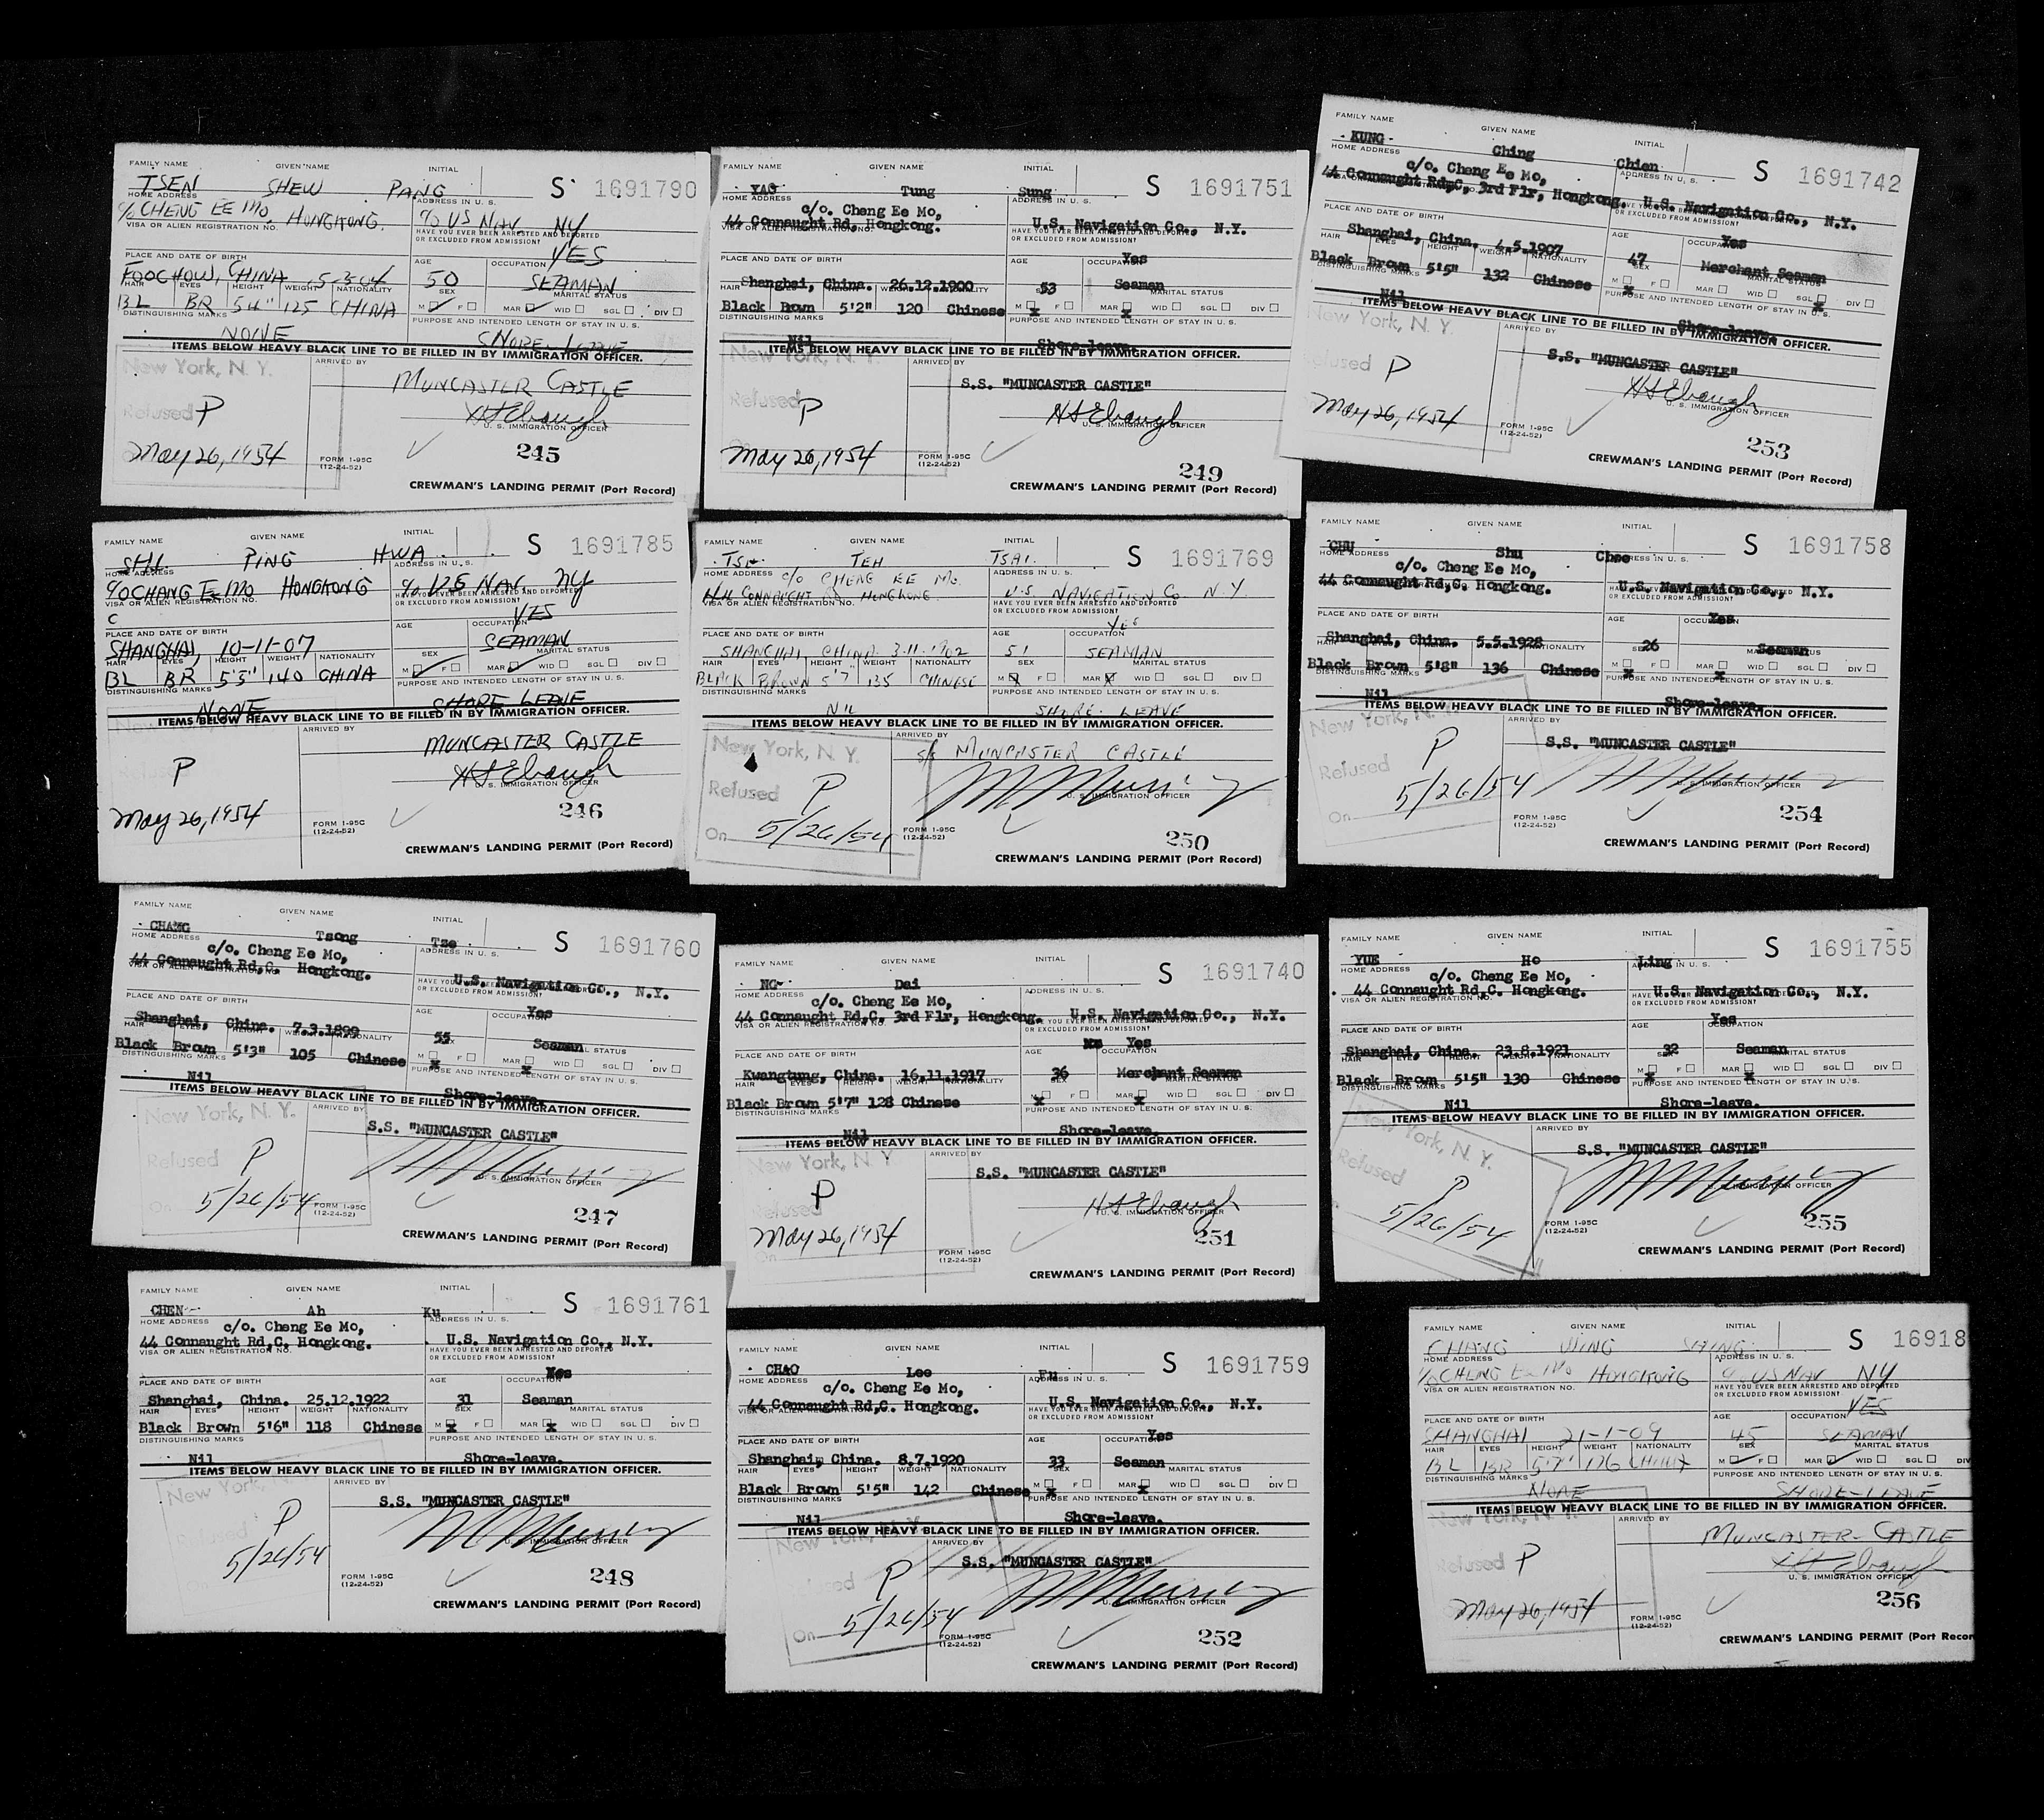 FAMILY NAME GIVEN NAME INITIAL
TSEN SHEW PANG S 1691790
HOME ADDRESS ADDRESS IN U. S.
c/o CHENG EE MO, HONGKONG. c/o US NAV. NY
VISA OR ALIEN REGISTRATION NO. HAVE YOU EVER BEEN ARRESTED AND DEPORTED
OR EXCLUDED FROM ADMISSION?
YES
PLACE AND DATE OF BIRTH AGE OCCUPATION
FOOCHOW, CHINA 5-3-04 50 SEAMAN
HAIR EYES HEIGHT WEIGHT NATIONALITY SEX MARITAL STATUS
BL BR 5'4" 125 CHINA M F MAR WID SGL DIV
DISTINGUISHING MARKS PURPOSE AND INTENDED LENGTH OF STAY IN U. S.
NONE SHORE-LEAVE
ITEMS BELOW HEAVY BLACK LINE TO BE FILLED IN BY IMMIGRATION OFFICER.
New York, N. Y. ARRIVED BY
MUNCASTER CASTLE
Refused P
U. S. IMMIGRATION OFFICER
May 26, 1954 245
FORM I-95C
(12-24-52)
CREWMAN'S LANDING PERMIT (Port Record)
FAMILY NAME GIVEN NAME INITIAL
SHU PING HWA S 1691785
HOME ADDRESS ADDRESS IN U. S.
c/o CHANG EE MO HONGKONG c/o US NAV. NY
VISA OR ALIEN REGISTRATION NO. HAVE YOU EVER BEEN ARRESTED AND DEPORTED
OR EXCLUDED FROM ADMISSION?
C YES
PLACE AND DATE OF BIRTH AGE OCCUPATION
SHANGHAI, 10-11-07 SEAMAN
HAIR EYES HEIGHT WEIGHT NATIONALITY SEX MARITAL STATUS
BL BR 5'5" 140 CHINA M F MAR WID SGL DIV
DISTINGUISHING MARKS PURPOSE AND INTENDED LENGTH OF STAY IN U. S.
NONE SHORE LEAVE
ITEMS BELOW HEAVY BLACK LINE TO BE FILLED IN BY IMMIGRATION OFFICER.
ARRIVED BY
MUNCASTER CASTLE
P
U. S. IMMIGRATION OFFICER
May 26, 1954 246
FORM I-95C
(12-24-52)
CREWMAN'S LANDING PERMIT (Port Record)
FAMILY NAME GIVEN NAME INITIAL
CHANG Tsong Tze S 1691760
HOME ADDRESS ADDRESS IN U. S.
c/o. Cheng Ee Mo,
44 Connaught Rd,C. Hongkong. U.S. Navigation Co., N.Y.
VISA OR ALIEN REGISTRATION NO. OR EXCLUDED FROM ADMISSION?
Yes
PLACE AND DATE OF BIRTH AGE OCCUPATION
Shanghai, China. 7.3.1899 55 Seaman
HAIR EYES HEIGHT NATIONALITY SEX MARITAL STATUS
Black Brown 5'3" 105 Chinese M F MAR WID SGL DIV
DISTINGUISHING MARKS PURPOSE AND INTENDED LENGTH OF STAY IN U. S.
Nil Shore-leave.
ITEMS BELOW HEAVY BLACK LINE TO BE FILLED IN BY IMMIGRATION OFFICER.
New York, N. Y. ARRIVED BY
S.S. "MUNCASTER CASTLE"
Refused P
U. S. IMMIGRATION OFFICER
On 5/26/54 247
FORM I-95C
(12-24-52)
CREWMAN'S LANDING PERMIT (Port Record)
FAMILY NAME GIVEN NAME INITIAL
CHEN Ah Ku S 1691761
HOME ADDRESS ADDRESS IN U. S.
c/o. Cheng Ee Mo,
44 Connaught Rd,C. Hongkong. U.S. Navigation Co., N.Y.
VISA OR ALIEN REGISTRATION NO. HAVE YOU EVER BEEN ARRESTED AND DEPORTED
OR EXCLUDED FROM ADMISSION?
PLACE AND DATE OF BIRTH AGE OCCUPATION
Shanghai, China. 25.12.1922 31 Seaman
HAIR EYES HEIGHT WEIGHT NATIONALITY SEX MARITAL STATUS
Black Brown 5'6" 118 Chinese M F MAR WID SGL DIV
DISTINGUISHING MARKS PURPOSE AND INTENDED LENGTH OF STAY IN U. S.
Nil Shore-leave.
ITEMS BELOW HEAVY BLACK LINE TO BE FILLED IN BY IMMIGRATION OFFICER.
New York, ARRIVED BY
S.S. "MUNCASTER CASTLE"
P
U. S. IMMIGRATION OFFICER
5/26/54 248
FORM I-95C
(12-24-52)
CREWMAN'S LANDING PERMIT (Port Record)
FAMILY NAME GIVEN NAME INITIAL
YAO Tung Sung S 1691751
HOME ADDRESS ADDRESS IN U. S.
c/o. Cheng Ee Mo,
44 Connaught Rd, Hongkong. U.S. Navigation Co., N.Y.
VISA OR ALIEN REGISTRATION NO. HAVE YOU EVER BEEN ARRESTED AND DEPORTED
OR EXCLUDED FROM ADMISSION?
Yes
PLACE AND DATE OF BIRTH AGE OCCUPATION
Shanghai, China. 26.12.1900 53 Seaman
Black Brown 5'2" 120 Chinese M F MAR WID SGL DIV
DISTINGUISHING MARKS PURPOSE AND INTENDED LENGTH OF STAY IN U. S.
Nil Shore-leave.
ITEMS BELOW HEAVY BLACK LINE TO BE FILLED IN BY IMMIGRATION OFFICER.
New York, N. ARRIVED BY
S.S. "MUNCASTER CASTLE"
Refused P
U. S. IMMIGRATION OFFICER
May 26, 1954 249
FORM I-95C
(12-24-52)
CREWMAN'S LANDING PERMIT (Port Record)
FAMILY NAME GIVEN NAME INITIAL
TEH TSAI. S 1691769
HOME ADDRESS ADDRESS IN U. S.
c/o CHENG EE MO.
44 CONNAUGHT RD HONGKONG U.S. NAVIGATION CO N.Y.
VISA OR ALIEN REGISTRATION NO. HAVE YOU EVER BEEN ARRESTED AND DEPORTED
OR EXCLUDED FROM ADMISSION?
Yes
PLACE AND DATE OF BIRTH AGE OCCUPATION
SHANGHAI CHINA 3-11-1902 51 SEAMAN
HAIR EYES HEIGHT WEIGHT NATIONALITY SEX MARITAL STATUS
BLACK BROWN 5'7" 135 CHINESE M F MAR WID SGL DIV
DISTINGUISHING MARKS PURPOSE AND INTENDED LENGTH OF STAY IN U. S.
NIL SHORE. LEAVE
ITEMS BELOW HEAVY BLACK LINE TO BE FILLED IN BY IMMIGRATION OFFICER.
New York, N. Y. ARRIVED BY
S/S MUNCASTER CASTLE
Refused P
U. S. IMMIGRATION OFFICER
On 5/26/54 250
FORM I-95C
(12-24-52)
CREWMAN'S LANDING PERMIT (Port Record)
FAMILY NAME GIVEN NAME INITIAL
NG Dai S 1691740
HOME ADDRESS ADDRESS IN U. S.
c/o. Cheng Ee Mo,
44 Connaught Rd,C. 3rd Flr, Hongkong. U.S. Navigation Co., N.Y.
VISA OR ALIEN REGISTRATION NO. HAVE YOU EVER BEEN ARRESTED AND DEPORTED
OR EXCLUDED FROM ADMISSION?
Yes
AGE OCCUPATION
PLACE AND DATE OF BIRTH
Kwangtung, China. 16.11.1917 36 Merchant Seaman
HAIR EYES HEIGHT WEIGHT NATIONALITY SEX MARITAL STATUS
Black Brown 5'7" 128 Chinese M F MAR WID SGL DIV
DISTINGUISHING MARKS PURPOSE AND INTENDED LENGTH OF STAY IN U. S.
Nil Shore-leave.
ITEMS BELOW HEAVY BLACK LINE TO BE FILLED IN BY IMMIGRATION OFFICER.
New York, N. Y ARRIVED BY
S.S. "MUNCASTER CASTLE"
P
Refused
U. S. IMMIGRATION OFFICER
May 26, 1954 251
FORM I-95C
(12-24-52)
CREWMAN'S LANDING PERMIT (Port Record)
FAMILY NAME GIVEN NAME INITIAL
CHAO Lee Fu S 1691759
HOME ADDRESS ADDRESS IN U. S.
c/o. Cheng Ee Mo,
44 Connaught Rd,C. Hongkong. U.S. Navigation Co., N.Y.
VISA OR ALIEN REGISTRATION NO. HAVE YOU EVER BEEN ARRESTED AND DEPORTED
OR EXCLUDED FROM ADMISSION?
Yes
PLACE AND DATE OF BIRTH AGE OCCUPATION
Shanghai, China. 8.7.1920 33 Seaman
HAIR EYES HEIGHT WEIGHT NATIONALITY SEX MARITAL STATUS
Black Brown 5'5" 142 Chinese M F MAR WID SGL DIV
DISTINGUISHING MARKS PURPOSE AND INTENDED LENGTH OF STAY IN U. S.
Nil Shore-leave.
ITEMS BELOW HEAVY BLACK LINE TO BE FILLED IN BY IMMIGRATION OFFICER.
New York, N. Y. ARRIVED BY
S.S. "MUNCASTER CASTLE"
P
U. S. IMMIGRATION OFFICER
On 5/26/54 252
FORM I-95C
(12-24-52)
CREWMAN'S LANDING PERMIT (Port Record)
FAMILY NAME GIVEN NAME INITIAL
KUNG Ching Chien S 1691742
HOME ADDRESS ADDRESS IN U. S.
c/o. Cheng Ee Mo,
44 Connaught Rd,C, 3rd Flr, Hongkong. U.S. Navigation Co., N.Y.
OR EXCLUDED FROM ADMISSION?
PLACE AND DATE OF BIRTH Yes
AGE OCCUPATION
Shanghai, China. 4.5.1907 47 Merchant Seaman
EYES HEIGHT WEIGHT NATIONALITY SEX
Black Brown 5'5" 132 Chinese M F MAR WID SGL DIV
DISTINGUISHING MARKS PURPOSE AND INTENDED LENGTH OF STAY IN U. S.
Nil Shore-leave.
ITEMS BELOW HEAVY BLACK LINE TO BE FILLED IN BY IMMIGRATION OFFICER.
New York, N. Y. ARRIVED BY
S.S. "MUNCASTER CASTLE"
Refused P
U. S. IMMIGRATION OFFICER
May 26, 1954 253
FORM I-95C
(12-24-52)
CREWMAN'S LANDING PERMIT (Port Record)
FAMILY NAME GIVEN NAME INITIAL
CHU Shu Chee S 1691758
HOME ADDRESS ADDRESS IN U. S.
c/o. Cheng Ee Mo,
44 Connaught Rd,C. Hongkong. U.S. Navigation Co., N.Y.
OR EXCLUDED FROM ADMISSION?
Yes
PLACE AND DATE OF BIRTH AGE OCCUPATION
Shanghai, China. 5.5.1928 26 Seaman
HAIR EYES HEIGHT WEIGHT NATIONALITY MARITAL STATUS
Black Brown 5'8" 136 Chinese M F MAR WID SGL DIV
DISTINGUISHING MARKS PURPOSE AND INTENDED LENGTH OF STAY IN U. S.
Nil Shore-leave.
ITEMS BELOW HEAVY BLACK LINE TO BE FILLED IN BY IMMIGRATION OFFICER.
New York, N. Y. ARRIVED BY
S.S. "MUNCASTER CASTLE"
Refused P
U. S. IMMIGRATION OFFICER
On 5/26/54 254
FORM I-95C
(12-24-52)
CREWMAN'S LANDING PERMIT (Port Record)
FAMILY NAME GIVEN NAME INITIAL
YUE Ho Ling S 1691755
HOME ADDRESS ADDRESS IN U. S.
c/o. Cheng Ee Mo,
44 Connaught Rd,C. Hongkong. U.S. Navigation Co., N.Y.
VISA OR ALIEN REGISTRATION NO. HAVE YOU EVER BEEN ARRESTED AND DEPORTED
OR EXCLUDED FROM ADMISSION?
Yes
PLACE AND DATE OF BIRTH AGE OCCUPATION
Shanghai, China. 23.8.1921 32 Seaman
HAIR EYES HEIGHT WEIGHT NATIONALITY SEX MARITAL STATUS
Black Brown 5'5" 130 Chinese M F MAR WID SGL DIV
DISTINGUISHING MARKS PURPOSE AND INTENDED LENGTH OF STAY IN U. S.
Nil Shore-leave.
ITEMS BELOW HEAVY BLACK LINE TO BE FILLED IN BY IMMIGRATION OFFICER.
New York, N. Y. ARRIVED BY
S.S. "MUNCASTER CASTLE"
Refused P
U. S. IMMIGRATION OFFICER
5/26/54 255
FORM I-95C
(12-24-52)
CREWMAN'S LANDING PERMIT (Port Record)
FAMILY NAME GIVEN NAME INITIAL
CHANG SHING S 16918
HOME ADDRESS ADDRESS IN U. S.
c/o CHENG EE MO HONGKONG c/o US NAV NY
VISA OR ALIEN REGISTRATION NO. HAVE YOU EVER BEEN ARRESTED AND DEPORTED
OR EXCLUDED FROM ADMISSION?
YES
PLACE AND DATE OF BIRTH AGE OCCUPATION
SHANGHAI 21-1-09 45 SEAMAN
HAIR EYES HEIGHT WEIGHT NATIONALITY SEX MARITAL STATUS
BL BR 5'7" 126 CHINA M F MAR WID SGL DIV
DISTINGUISHING MARKS PURPOSE AND INTENDED LENGTH OF STAY IN U. S.
NONE SHORE-LEAVE
ITEMS BELOW HEAVY BLACK LINE TO BE FILLED IN BY IMMIGRATION OFFICER.
New York, N. Y. ARRIVED BY
MUNCASTER-CATLE
Refused P
U. S. IMMIGRATION OFFICER
May 26, 1954 256
FORM I-95C
(12-24-52)
CREWMAN'S LANDING PERMIT (Port Recor